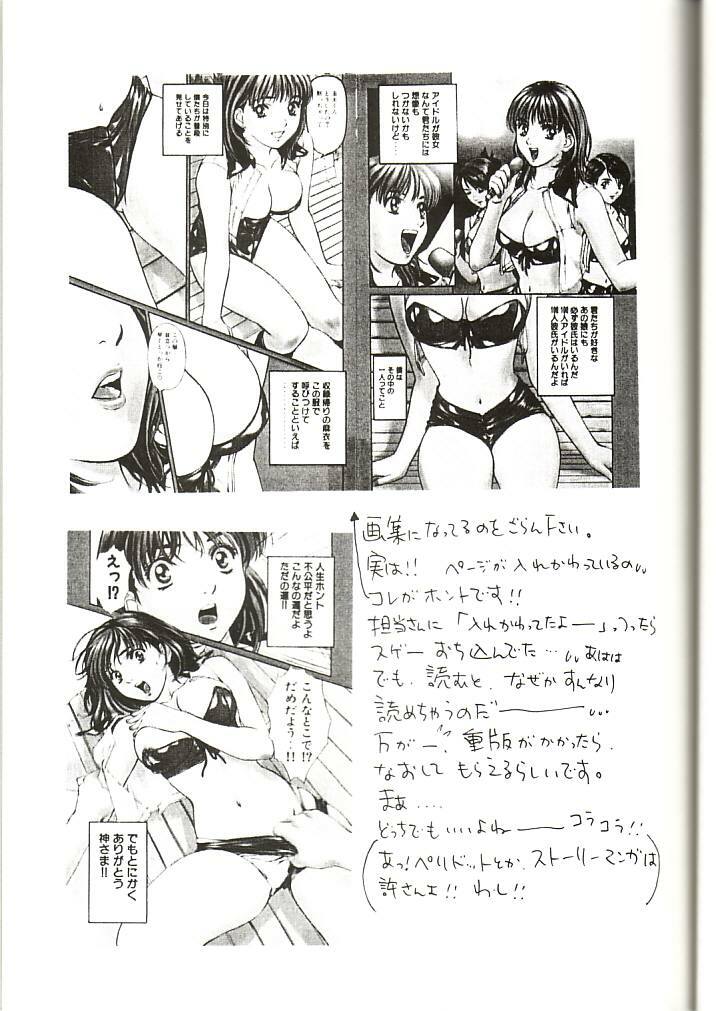 アイドルが彼女
なんて君たちには
想像も
つかないかも
しれないけど…
君たちが好きな
あの娘にも
必ず彼氏はいるんだ
僧人アイドルがいれば
僧人彼氏がいるんだよ
僕は
その中の
一人ってこと
今日は特別に
僕たちが普段
していることを
見せてあげる
収録帰りの麻衣を
この服で
呼びつけて
することといえば
………
えっ!?
人生ホント
不公平だと思うよ
こんなの運だよ
ただの運!!
こんなとこで!?
だめだよう…!!
でもとにかく
ありがとう
神さま!!
画集になってるのをごらん下さい。
実は!! ページが入れかわっているの…
コレがホントです!!
担当さんに「入れかわってたよー」っつったら
スゲー おち込んでた… あはは
でも、読むと、なぜか すんなり
読めちゃうのだ―――…
万が一、重版がかかったら、
なおして もらえるらしいです。
まぁ….
どっちでも いいよねー― コラコラ!!
(あっ!ペリドットとか、ストーリーマンガは
許さんよ!! わし!!)